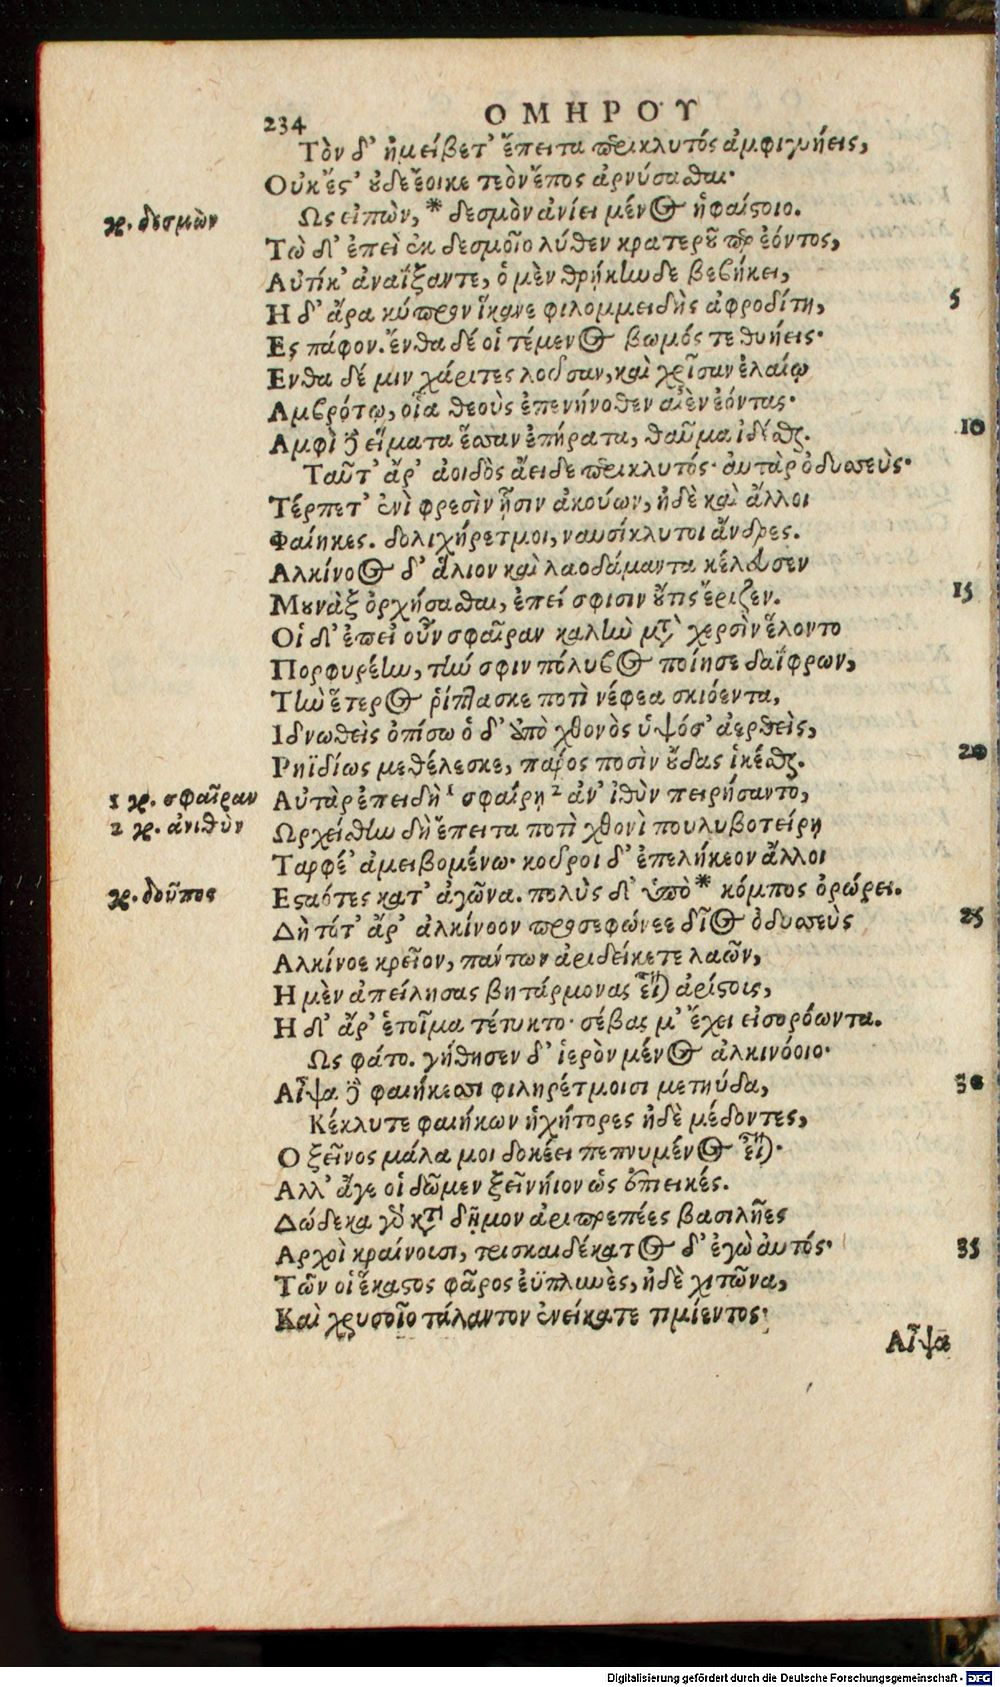 234
ΟΜΗΡΟΥ
Τὸν δ' ἠμείβετ' ἔπειτα περικλυτός ἀμφιγυήεις,
Οὐκ ἔς' οὐδὲ ἔοικε τεὸν ἔπος ἀρνήσασθαι·
γρ. δεσμὼν
Ως εἰπὼν, * δεσμὸν ἀνίει μένος ἡφαίστοιο.
Τὼ δ' ἐπεὶ ἐκ δεσμοῖο λύθεν κρατεροῦ περ ἐόντος,
Αὐτίκ' ἀναΐξαντε, ὁ μὲν θρήκην δε βεβήκει,
Η δ' ἄρα κύπρον ἵκανε φιλομμειδὴς ἀφροδίτη,
5
Ες πάφον. ἔνθα δέ οἱ τέμενος βωμός τε θυήεις·
Ενθα δέ μιν χάριτες λοῦσαν, καὶ χρῖσαν ἐλαίῳ
Αμβρότῳ, οἷα θεοὺς ἐπενήνοθεν αἰὲν ἐόντας·
Αμφὶ δὲ εἵματα ἕσσαν ἐπήρατα, θαῦμα ἰδέσθαι.
10
Ταῦτ' ἄρ' ἀοιδὸς ἄειδε περικλυτός· αὐτὰρ ὀδυσσεὺς·
Τέρπετ' ἐνὶ φρεσὶν ᾗσιν ἀκούων, ἠδὲ καὶ ἄλλοι
Φαίηκες. δολιχήρετμοι, ναυσίκλυτοι ἄνδρες.
Αλκίνοος δ' ἅλιον καὶ λαοδάμαντα κέλευσεν
Μουνὰξ ὀρχήσασθαι, ἐπεί σφισιν οὔτις ἔριζεν.
15
Οἱ δ' ἐπεὶ οὖν σφαῖραν καλὴν μετὰ χερσὶν ἕλοντο
Πορφυρέην, τήν σφιν πόλυβος ποίησε δαΐφρων,
Τὴν ἕτερος ῥίπτασκε ποτὶ νέφεα σκιόεντα,
Ιδνωθεὶς ὀπίσω ὁ δ' ἀπὸ χθονὸς ὑψόσ' ἀερθεὶς,
Ρηϊδίως μεθέλεσκε, πάρος ποσὶν οὖδας ἱκέσθαι.
20
1 γρ. σφαῖραν
Αὐτὰρ ἐπειδὴ 1 σφαίρῃ 2 ἀν' ἰθὺν πειρήσαντο,
2 γρ. ἀνιθὺν
Ωρχείσθην δὴ ἔπειτα ποτὶ χθονὶ πουλυβοτείρῃ
Ταρφέ' ἀμειβομένω· κοῦροι δ' ἐπελήκεον ἄλλοι
γρ. δοῦπος
Εσαότες κατ' ἀγῶνα. πολὺς δ' ὑπὸ * κόμπος ὀρώρει.
Δὴ τότ' ἄρ' ἀλκίνοον προσεφώνεε δῖος ὀδυσσεὺς
25
Αλκίνοε κρεῖον, πάντων ἀριδείκετε λαῶν,
Η μὲν ἀπείλησας βητάρμονας εἶναι ἀρίστοις,
Η δ' ἄρ' ἑτοῖμα τέτυκτο· σέβας μ' ἔχει εἰσορόωντα.
Ως φάτο. γήθησεν δ' ἱερὸν μένος ἀλκινόοιο·
Αἶψα δὲ φαιήκεσσι φιληρέτμοισι μετηύδα,
30
Κέκλυτε φαιήκων ἡγήτορες ἠδὲ μέδοντες,
Ο ξεῖνος μάλα μοι δοκέει πεπνυμένος εἶναι·
Αλλ' ἄγε οἱ δῶμεν ξεῖνήιον ὡς ἐπιεικές.
Δώδεκα γὰρ κατὰ δῆμον ἀριπρεπέες βασιλῆες
Αρχοὶ κραίνουσι, τρισκαιδέκατος δ' ἐγὼ αὐτός·
35
Τῶν οἱ ἕκαστος φᾶρος ἐϋπλυνὲς, ἠδὲ χιτῶνα,
Καὶ χρυσοῖο τάλαντον ἐνείκατε τιμίεντος·
Αἶψα
Digitalisierung gefördert durch die Deutsche Forschungsgemeinschaft - DFG